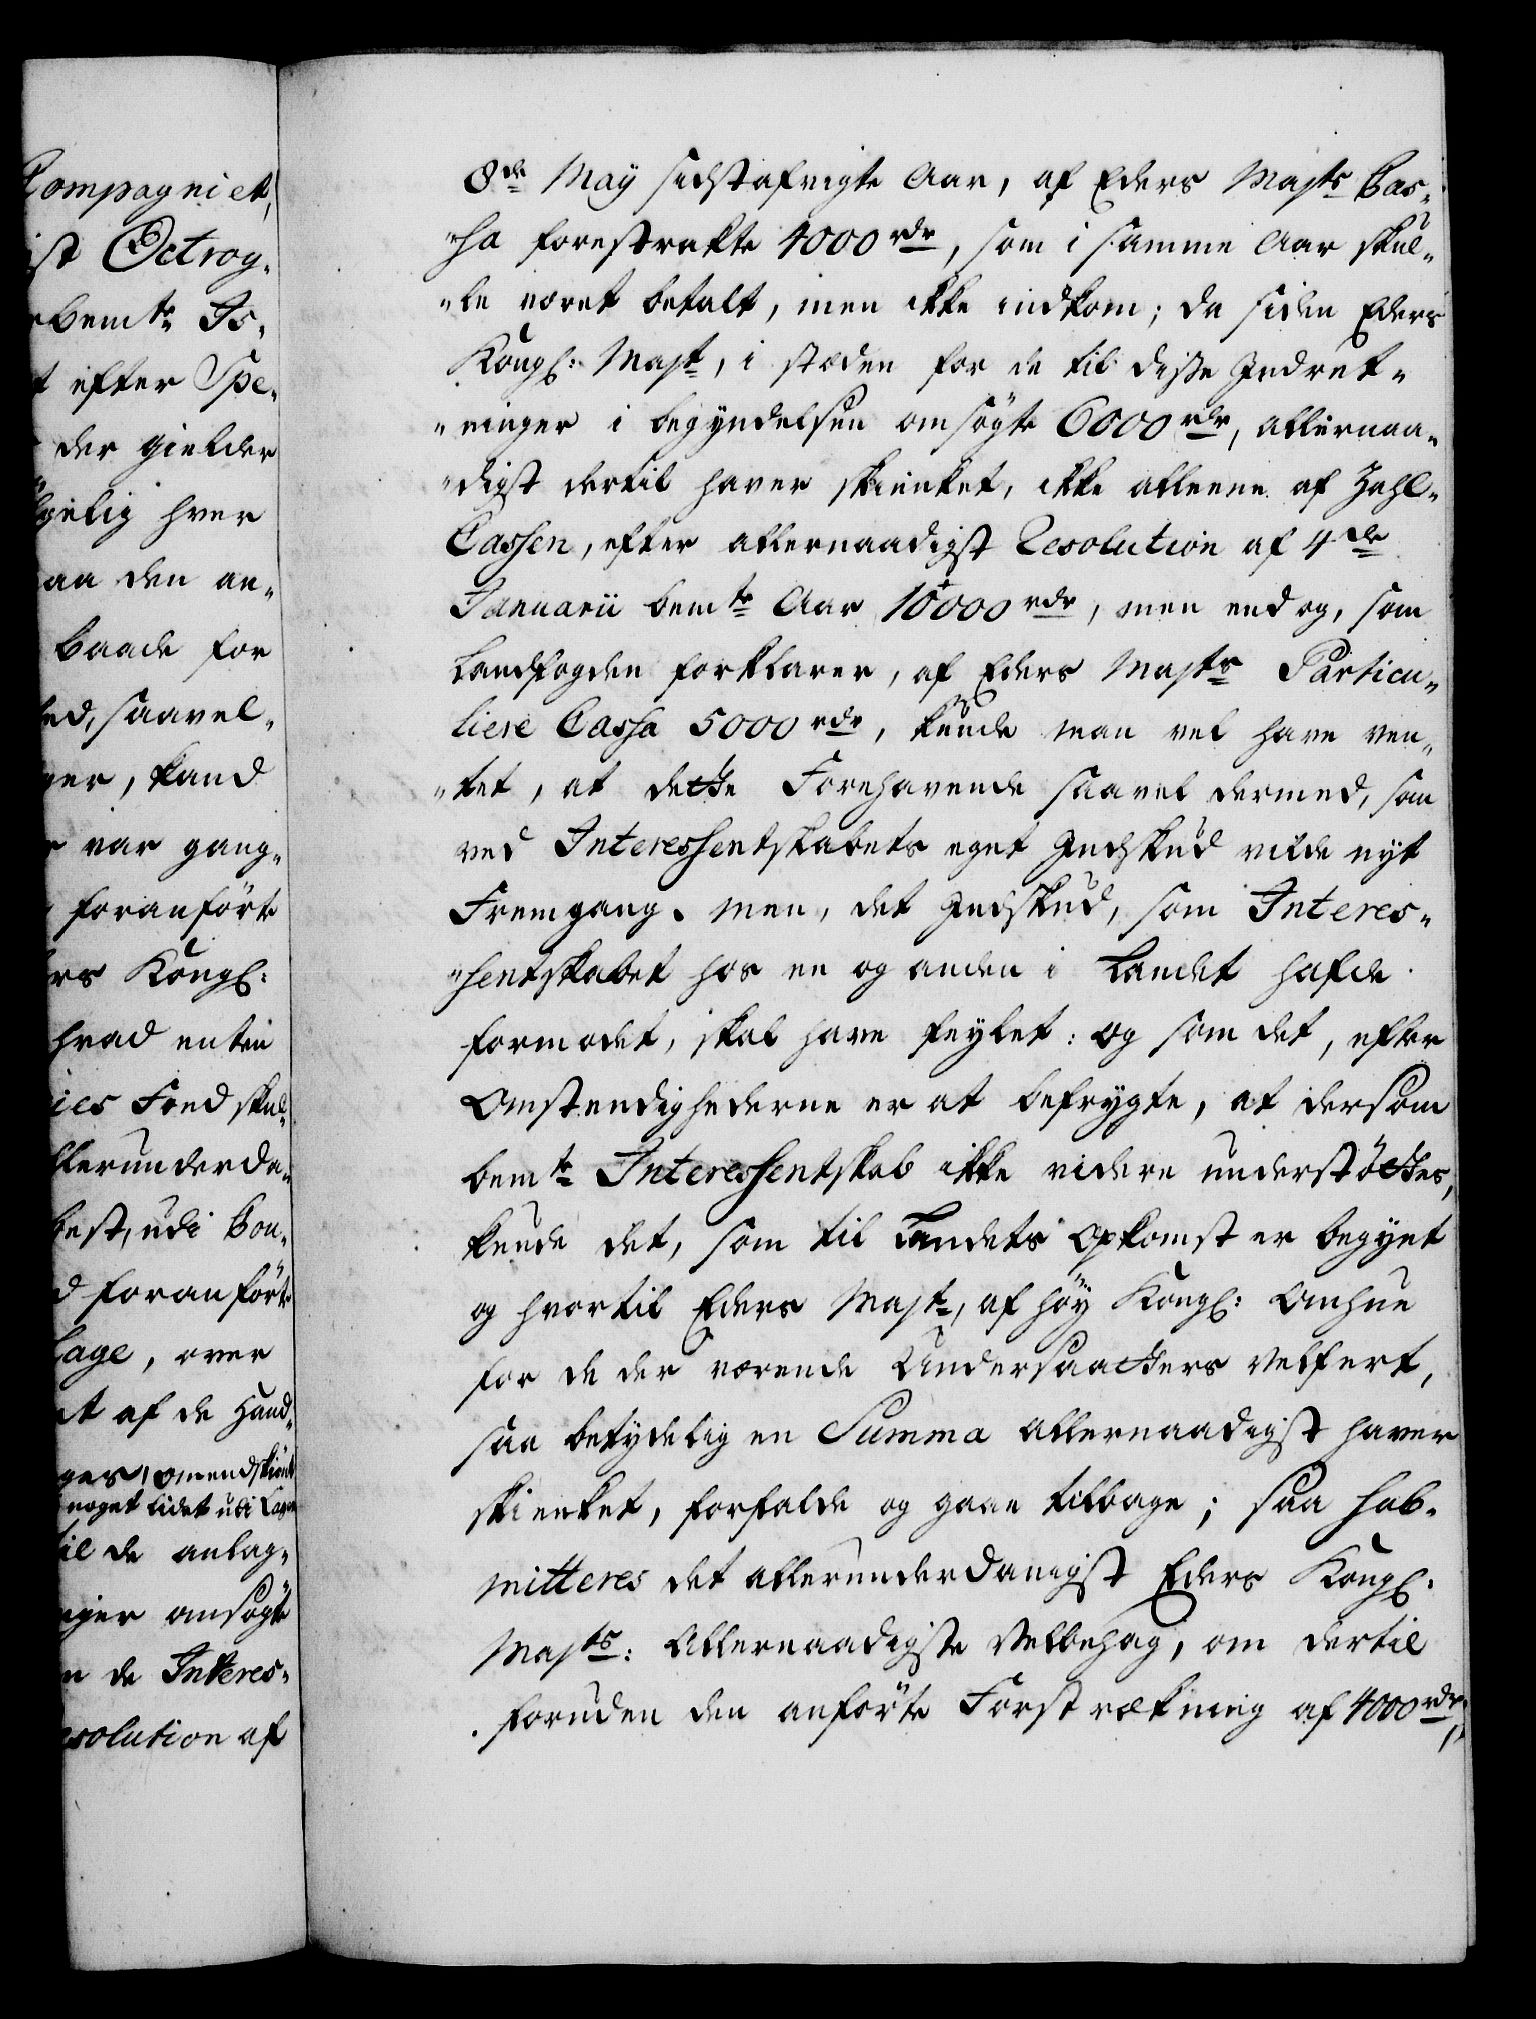 Compagniet,
ist Octroy-
bemte Is-
t efter Spe-
der gielder
gelig hver
aa den an-
baade for
ed, saavel-
ger, kand
var gang-
foranförte
rs Kongl:
hvad enten
ies Fond skul-
llerunderda-
best, udi Con-
d foranförte
lage, over
t af de Haand-
ges, omendskiönt
noget lidet udi Lagen
il de anlag-
ansögte
n de Interes-
esolution af
8de May sidstafvigte Aar, af Eders Majts Cas-
"sa forestrakte 4000 rdr, som i samme Aar skul-
"le været betalt, men ikke indkom; da siden Eders
Kongl: Majt, i stæden for de til disse Indret-
"ninger i begyndelsen omsögte 6000 rdr, allernaa-
"digst dertil haver skienket, ikke alleene af Zahl-
Cassen, efter allernaadigst Resolution af 4de
Januarii bemte Aar 10000 rdr, men end og, som
Landfogden forklarer, af Eders Majts Particu-
liere Cassa 5000 rdr, kunde man vel have ven-
"tet, at dette Forehavende saavel dermed, som
ved Interessentskabets eget Indskud vilde nyt
Fremgang. Men, det Indskud, som Interes-
"sentskabet hos en og anden i Landet hafde
formodet, skal have feylet: og som det, efter
Omstendighederne er at befrygte, at dersom
bemte Interessentskab ikke videre understöttes,
kunde det, som til Landets Opkomst er begynt
og hvortil Eders Majt, af höy Kongl: Omhue
for de der værende Undersaatters Velfert,
saa betydelig en Summa allernaadigst haver
skienket, forfalde og gaae tilbage; saa sub-
mitteres det allerunderdanigst Eders Kongl:
Majts: Allernaadigste Velbehag, om dertil
foruden den anförte Forstrækning af 4000 rdr,